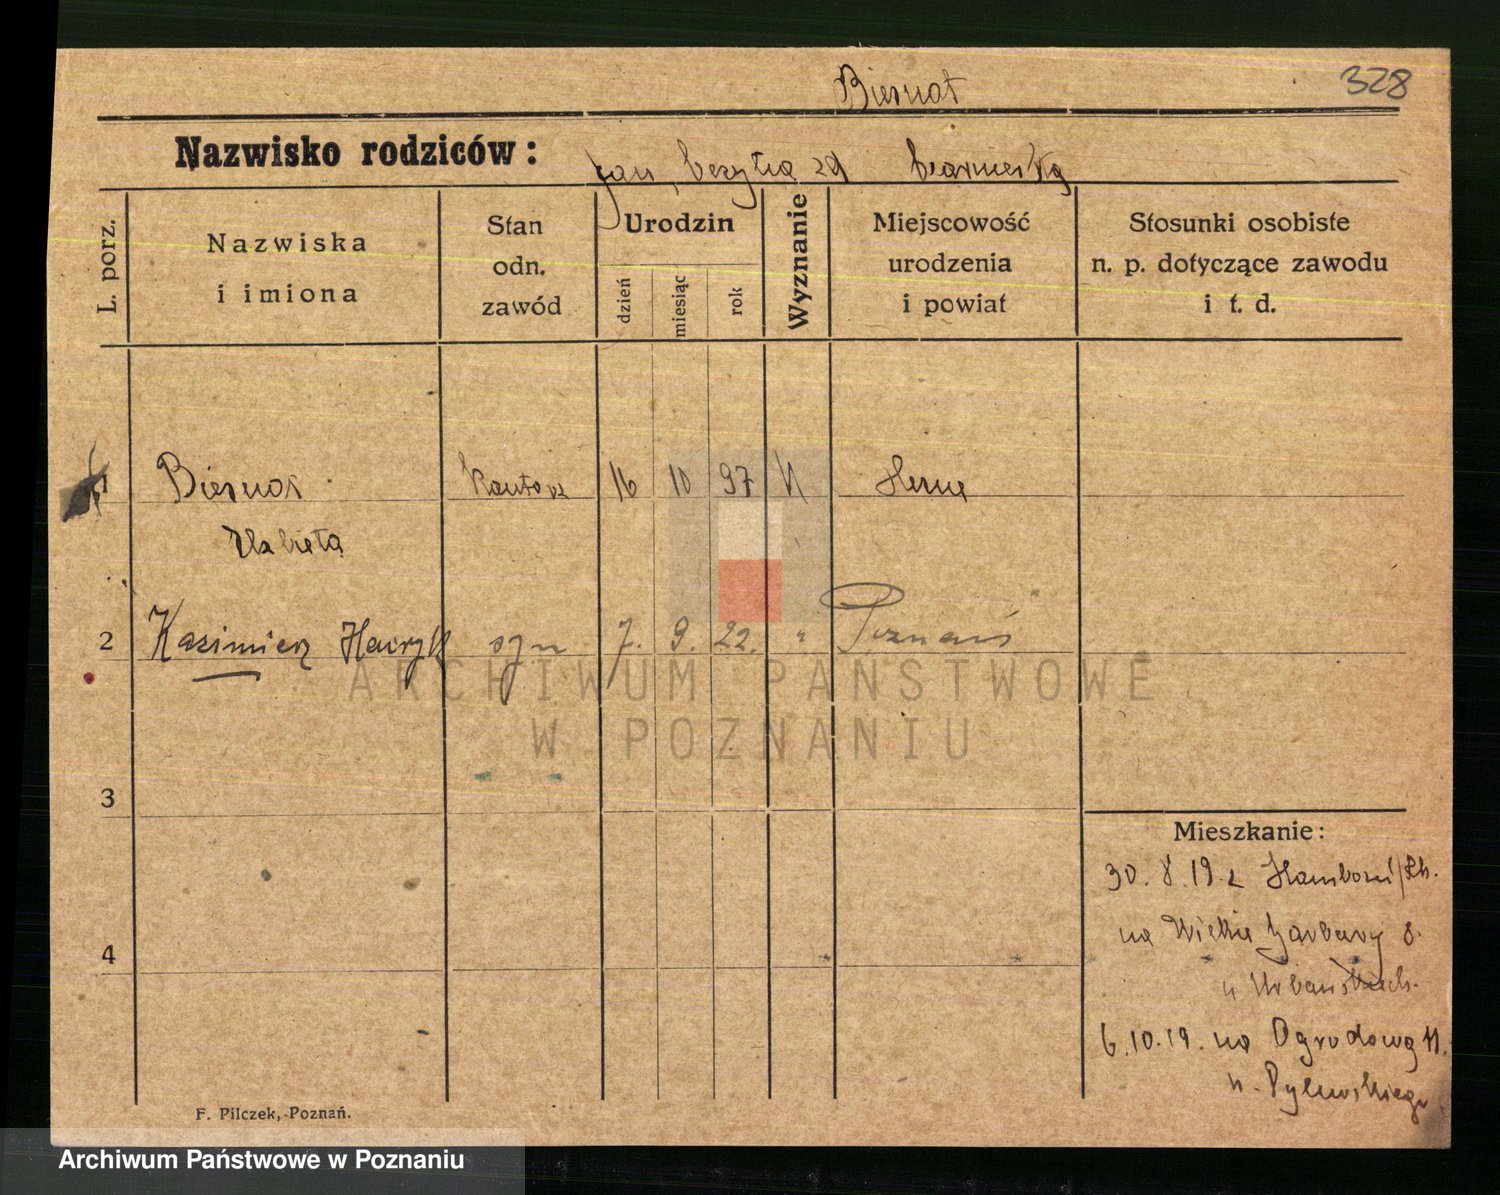 Biernat
328
Nazwisko rodziców:
Jan, Cezylia zd
L. porz.
Nazwiska
i imiona
Stan
odn.
zawód
Urodzin
dzień
miesiąc
rok
Wyznanie
Miejscowość
urodzenia
i powiat
Stosunki osobiste
n. p. dotyczące zawodu
i t. d.
1
Biernat
16 10 97 K Herne
Elzbieta
2
Kazimierz Henryk syn 7. 9. 22. " Poznań
ARCHIWUM PAŃSTWOWE
W POZNANIU
3
Mieszkanie:
30. 8. 19 z Hamborn/Rh.
na Wielkie Garbary 8.
u Urbańskich.
4
6.10.19. na Ogrodową 11.
u
F. Pilczek, Poznań.
Archiwum Państwowe w Poznaniu